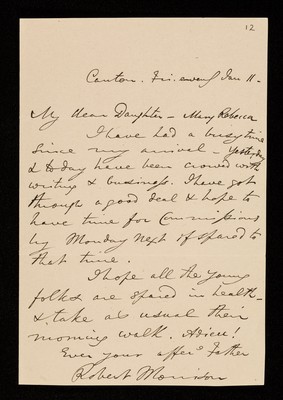 12
Canton. Fri. eveng Jan 11.
My dear Daughter – Mary Rebecca
I have had a busy time
since my arrival – Yesterday
& today have been crowded with
writing & business. I have got
through a good deal & hope to
have time for Commissions
by Monday next if spared to
that time.
I hope all the young
folks are spared in health –
& take as usual their
morning walk. Adieu!
Ever your affec. Father
Robert Morrison